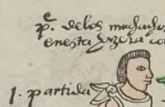 pº. de los muchachos
en esta hoja co
1. partida